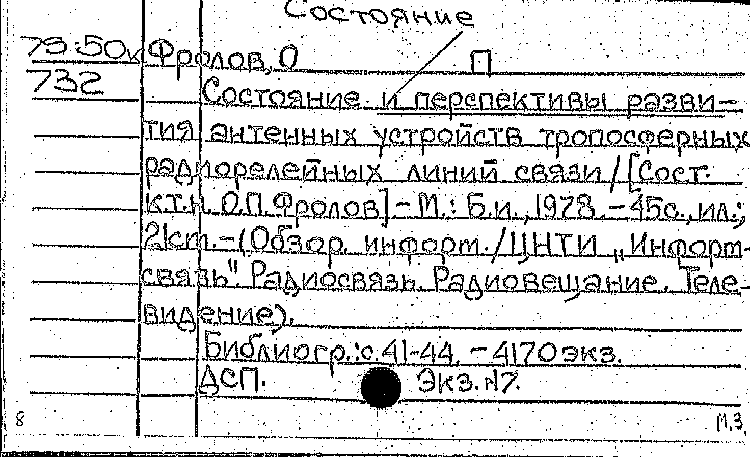 Состояние
79:50к Фролов, О П
732 Состояние и перспективы разви-
тия антенных устройств тропосферных
радиорелейных линий связи / [Сост.
к.т.н. О.П. Фролов] – М.: Б.и., 1978. – 45с., ил.;
21см. – (Обзор. информ. / ЦНТИ „Информ-
связь". Радиосвязь. Радиовещание. Теле-
видение).
Библиогр.: с. 41-44. – 4170 экз.
ДСП. Экз. №7.
8 М.З.